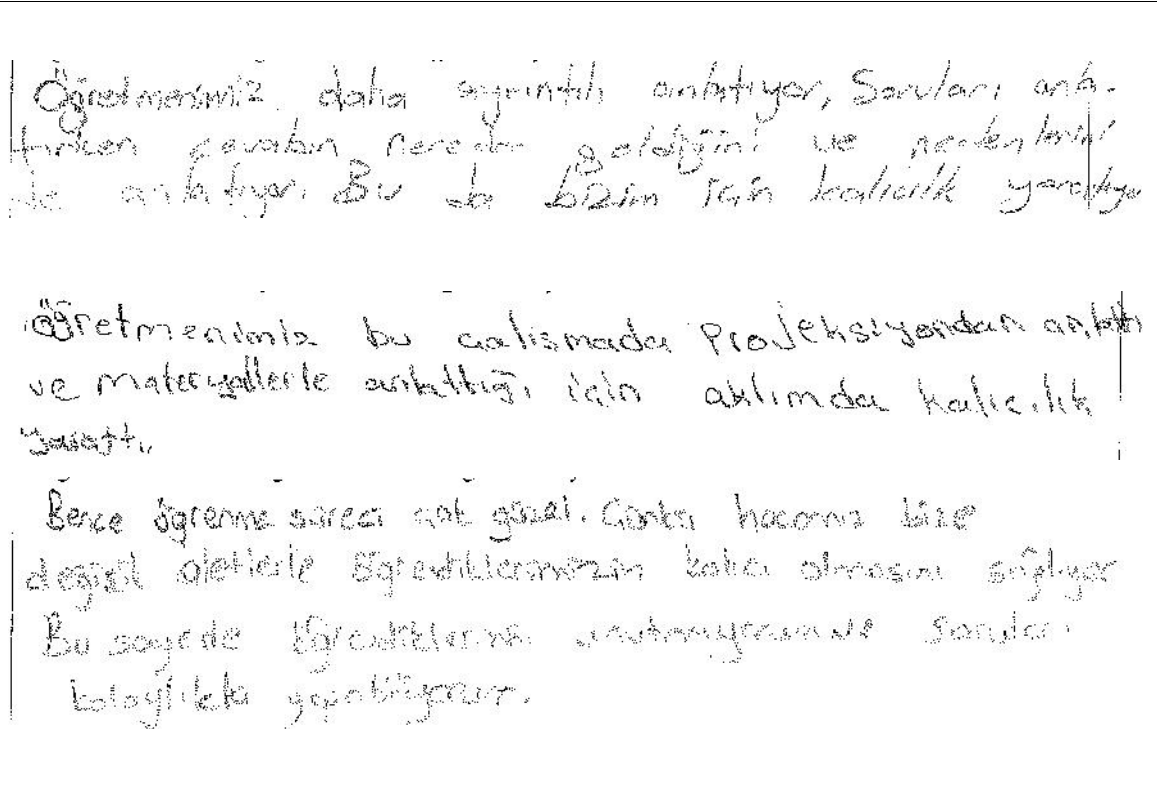 Öğretmenimiz daha ayrıntılı anlatıyor, Soruları anla-
tırken cevabın nereden geldiğini ve nedenlerini
de anlatıyor. Bu da bizim için kalıcılık yaratıyo
Öğretmenimiz bu calismada Projeksiyondan anlattı
ve Materyallerle anlattığı için aklımda kalıcılık
yarattı.
Bence öğrenme süreci çok güzel. Çünkü hocamız bize
değişik aletlerle öğrendiklerimizin kalıcı olmasını sağlıyor
Bu sayede öğrendiklerimi unutmuyorum ve soruları
kolaylıkla yapabiliyorum.